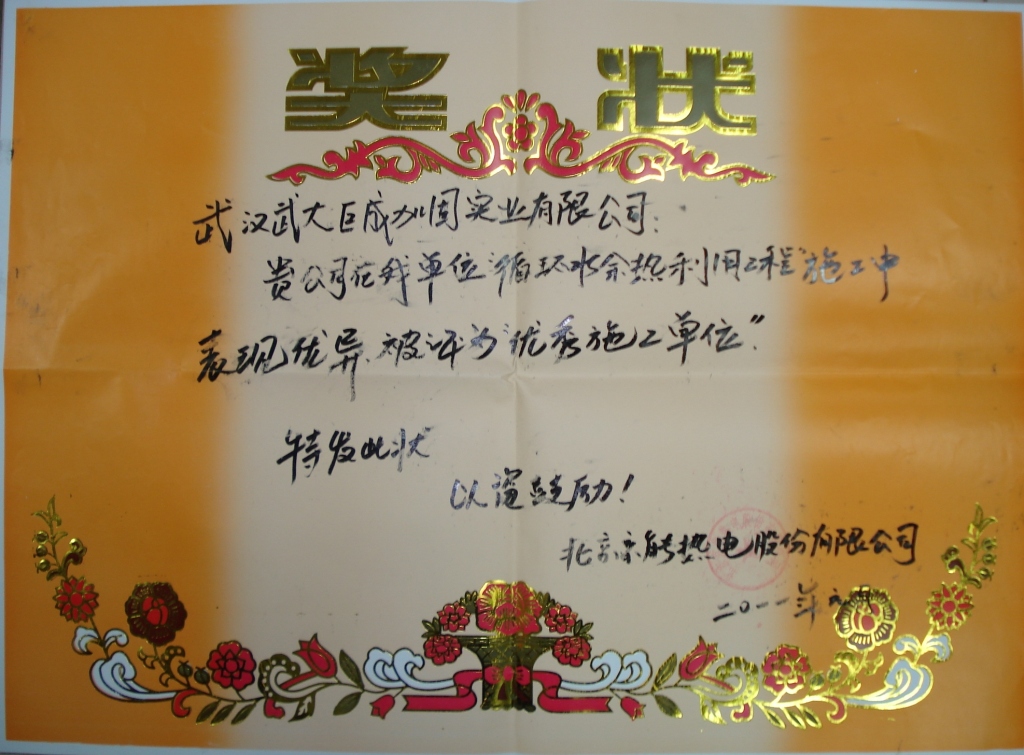 奖状
武汉武大巨成加固实业有限公司:
贵公司在我单位"循环水余热利用工程"施工中
表现优异,被评为"优秀施工单位"。
特发此状
以资鼓励!
北京京能热电股份有限公司
二〇一一年